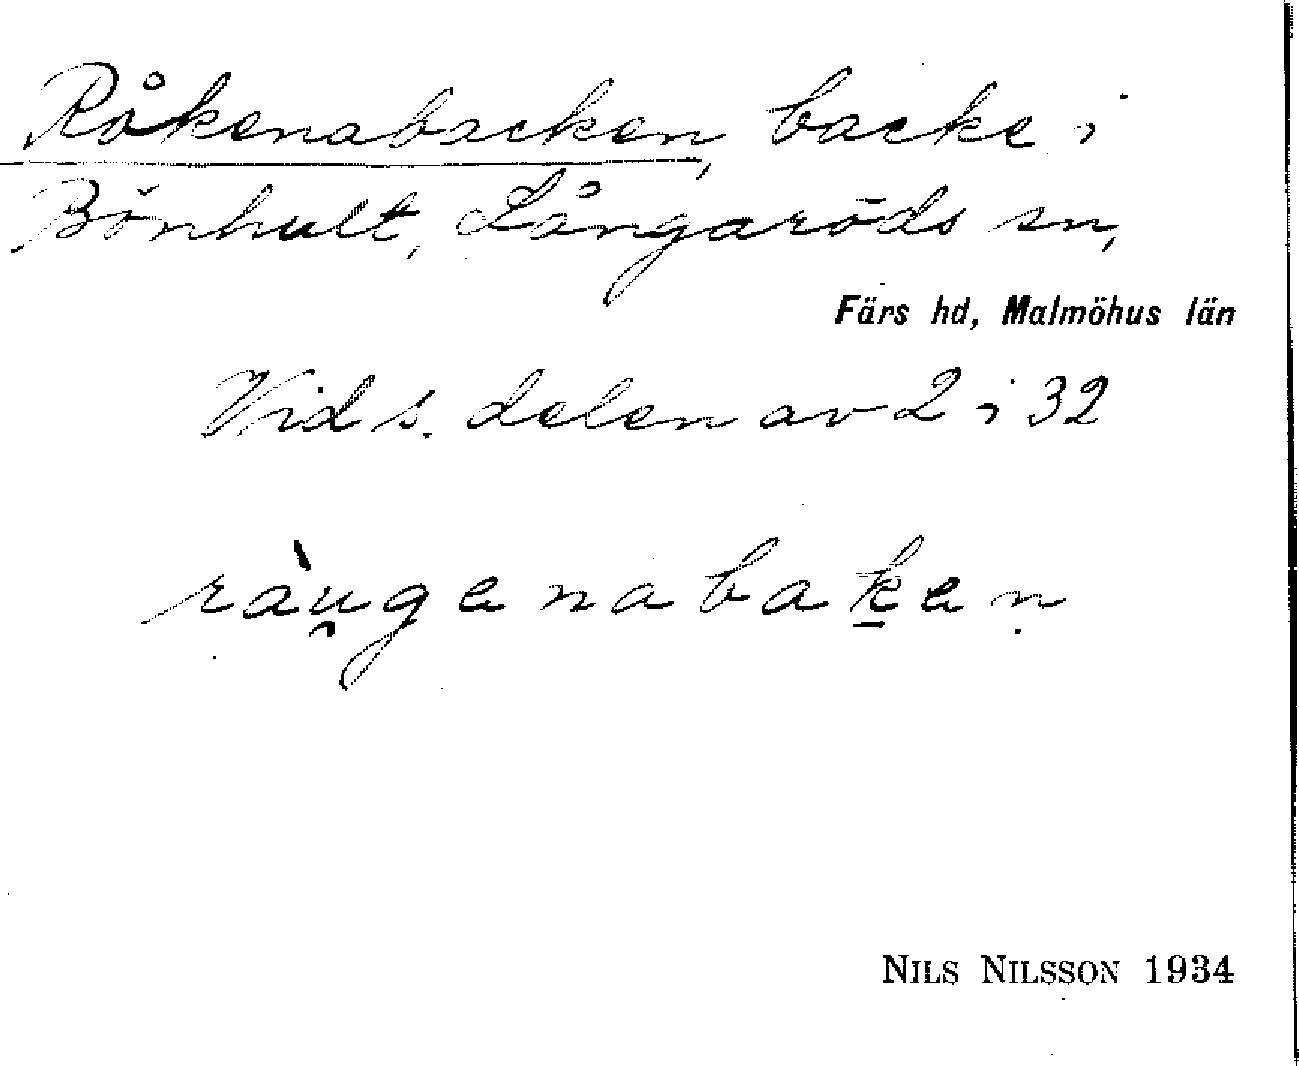 Råkenabacken, backe i
Bönhult, Långaröds sn,
Färs hd, Malmöhus län
Vid s. delen av 2 i 32
ràu̯genabaḵeṇ
NILS NILSSON 1934